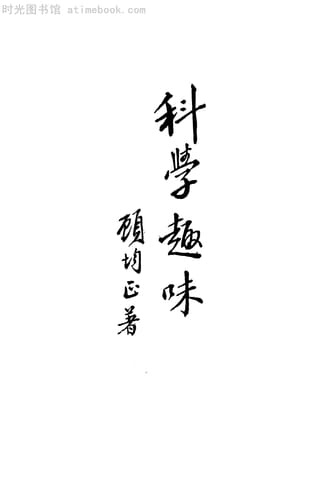 时光图书馆 atimebook.com
科學趣味
顾均正著